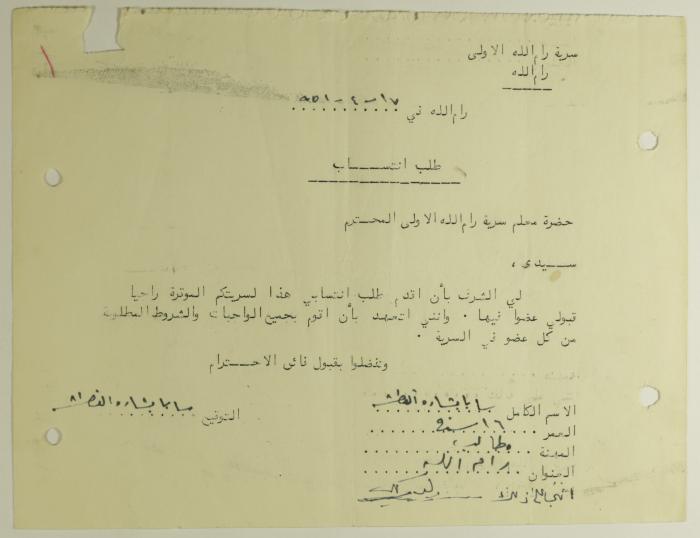 سرية رام الله الاولى
رام الله
رام الله في ١٧-٤-٩٥١
طلب انتســـاب
حضرة معلم سرية رام الله الاولى المحـترم
ســيدى ،
لي الشرف بأن اتقدم طلب انتسابي هذا لسريتكم الموقرة راجيا
قبولي عضوا فيها . وانني اتعهد بأن اقوم بجميع الواجبات والشروط المطلوبة
من كل عضو في السرية .
وتفضلوا بقبول فائق الاحـــترام
الاسم الكامل سابا بشاره
التوقيع سابا بشاره
العمر ١٦ سنة
المهنة طالب
العنوان رام الله